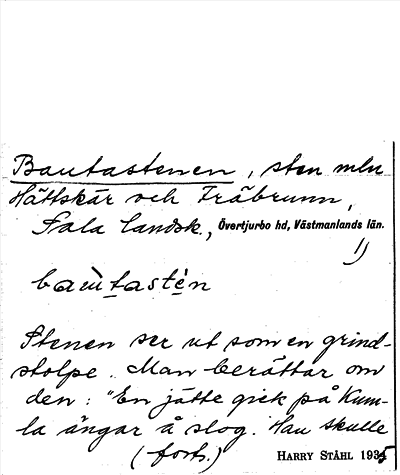 Bautastenen, sten mln
Hättskär och Träbrunn,
Sala landsk., Övertjurbo hd, Västmanlands län.
1)
bau̇tastėn
Stenen ser ut som en grind-
stolpe. Man berättar om
den: "En jätte gick på Kum-
la ängar å slog. Han skulle
(forts.) HARRY STÅHL 1935